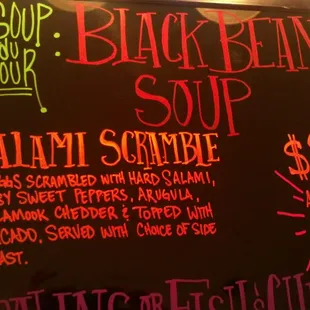 SOUP
DU
JOUR :
BLACK BEAN
SOUP
ALAMI SCRAMBLE
GGS SCRAMBLED WITH HARD SALAMI,
BY SWEET PEPPERS, ARUGULA,
LAMOOK CHEDDER & TOPPED WITH
CADO. SERVED WITH CHOICE OF SIDE
AST.
$
OR FISH &